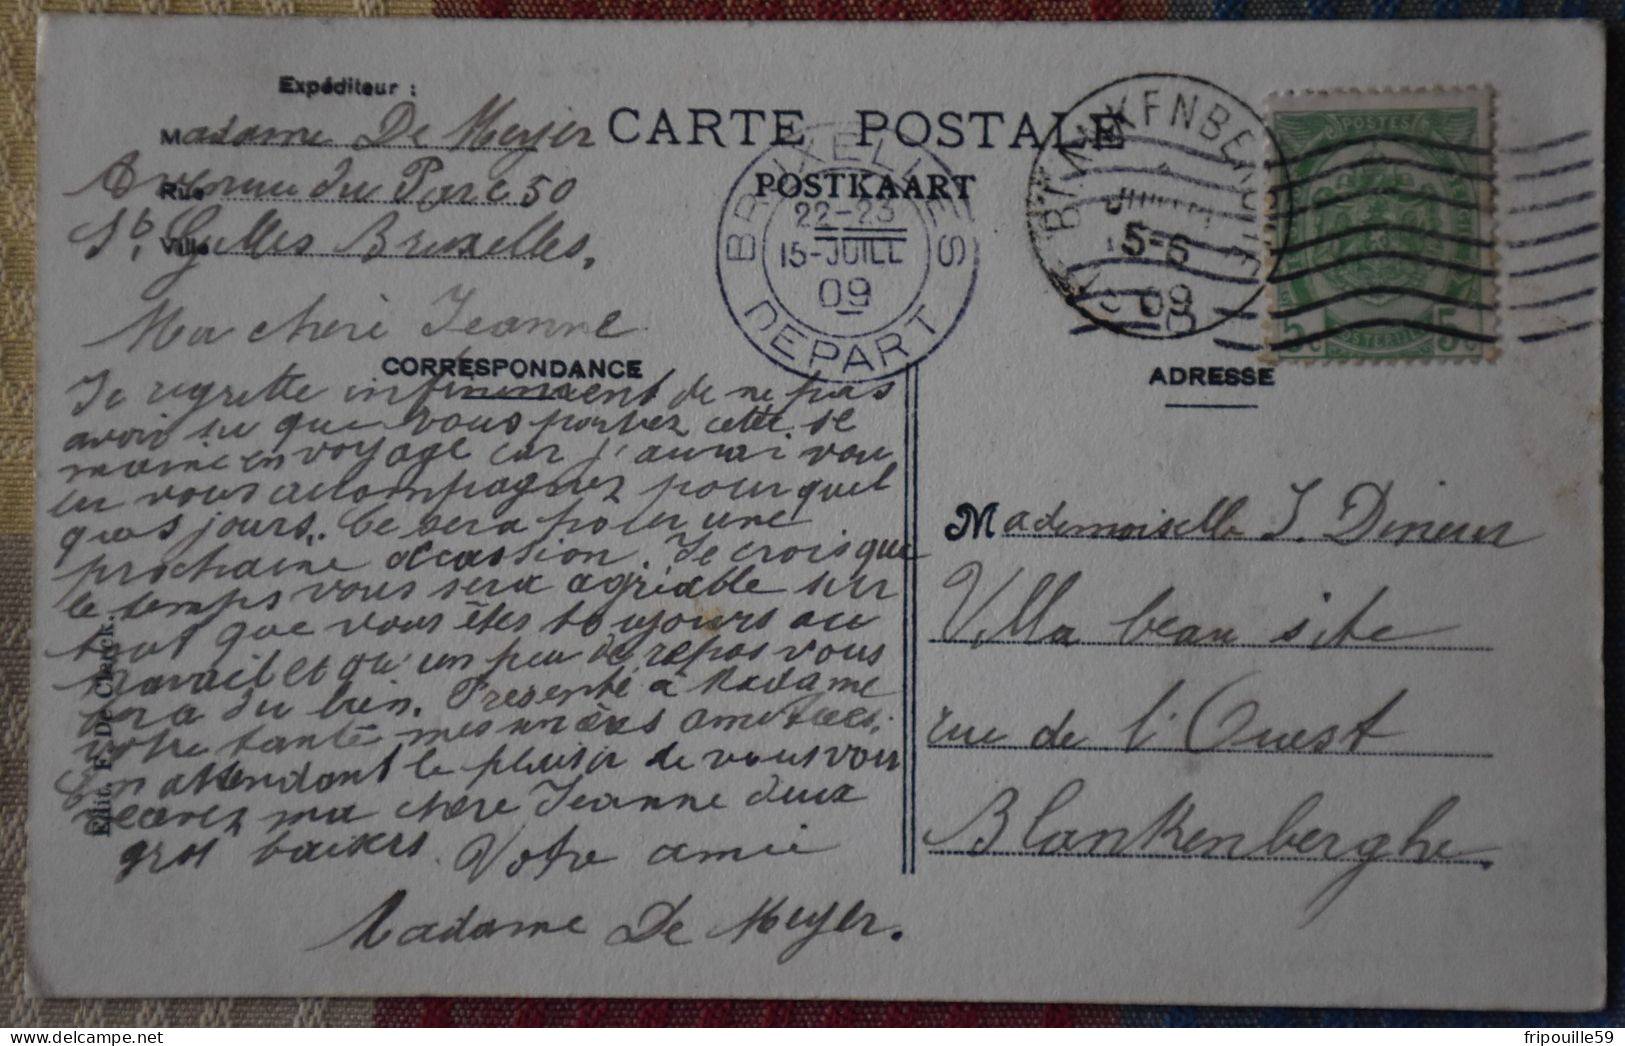 Expéditeur :
Madame De Meyer
Rue Avenue du Parc 50
Ville St. Gilles Bruxelles.
CARTE POSTALE
POSTKAART
BRUXELLES
22-23
15-JUILL
09
DEPART
BLANKENBERGHE
5-6
09
POSTES
5 5
Ma chère Jeanne
CORRESPONDANCE
Je regrette infiniment de ne pas
avoir su que vous partiez cette se
maine en voyage car j'aurai vou
lu vous accompagnez pour quel
ques jours. Ce sera pour une
prochaine occassion. Je crois que
le temps vous sera agréable sur
tout que vous êtes toujours au
travail et qu'un peu de repos vous
fera du bien. Presenté à Madame
votre tante mes amitiées.
En attendant le plaisir de vous voir
recevez ma chère Jeanne deux
gros baisers. Votre amie
Madame De Meyer.
Edit. F. De Clerck.
ADRESSE
Mademoiselle J. Dineur
Villa beau site
rue de l'Ouest
Blankenberghe.
fripouille59